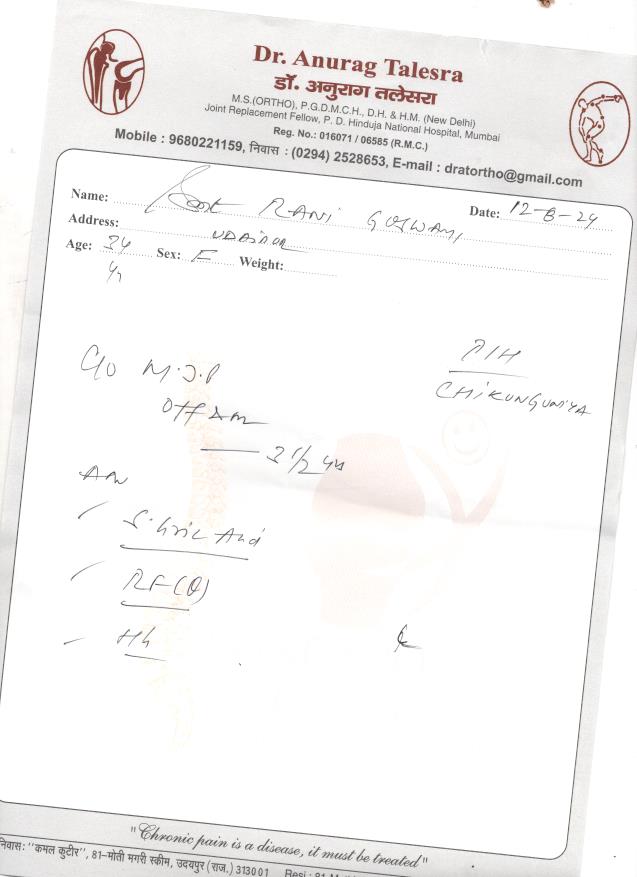 Dr. Anurag Talesra
डॉ. अनुराग तलेसरा
M.S.(ORTHO), P.G.D.M.C.H., D.H. & H.M. (New Delhi)
Joint Replacement Fellow, P. D. Hinduja National Hospital, Mumbai
Reg. No.: 016071 / 06585 (R.M.C.)
Mobile : 9680221159, निवास : (0294) 2528653, E-mail : dratortho@gmail.com
Name: RANI GOSWAMI Date: 12-8-24
Address: UDAIPUR
Age: 34 Sex: F Weight:
C/o M.J.P
P/H
CHIKUNGUNIYA
3 1/2
S. Uric Acid
RF (Q)
Hb
"Chronic pain is a disease, it must be treated"
निवास: "कमल कुटीर", 81-मोती मगरी स्कीम, उदयपुर (राज.) 313001